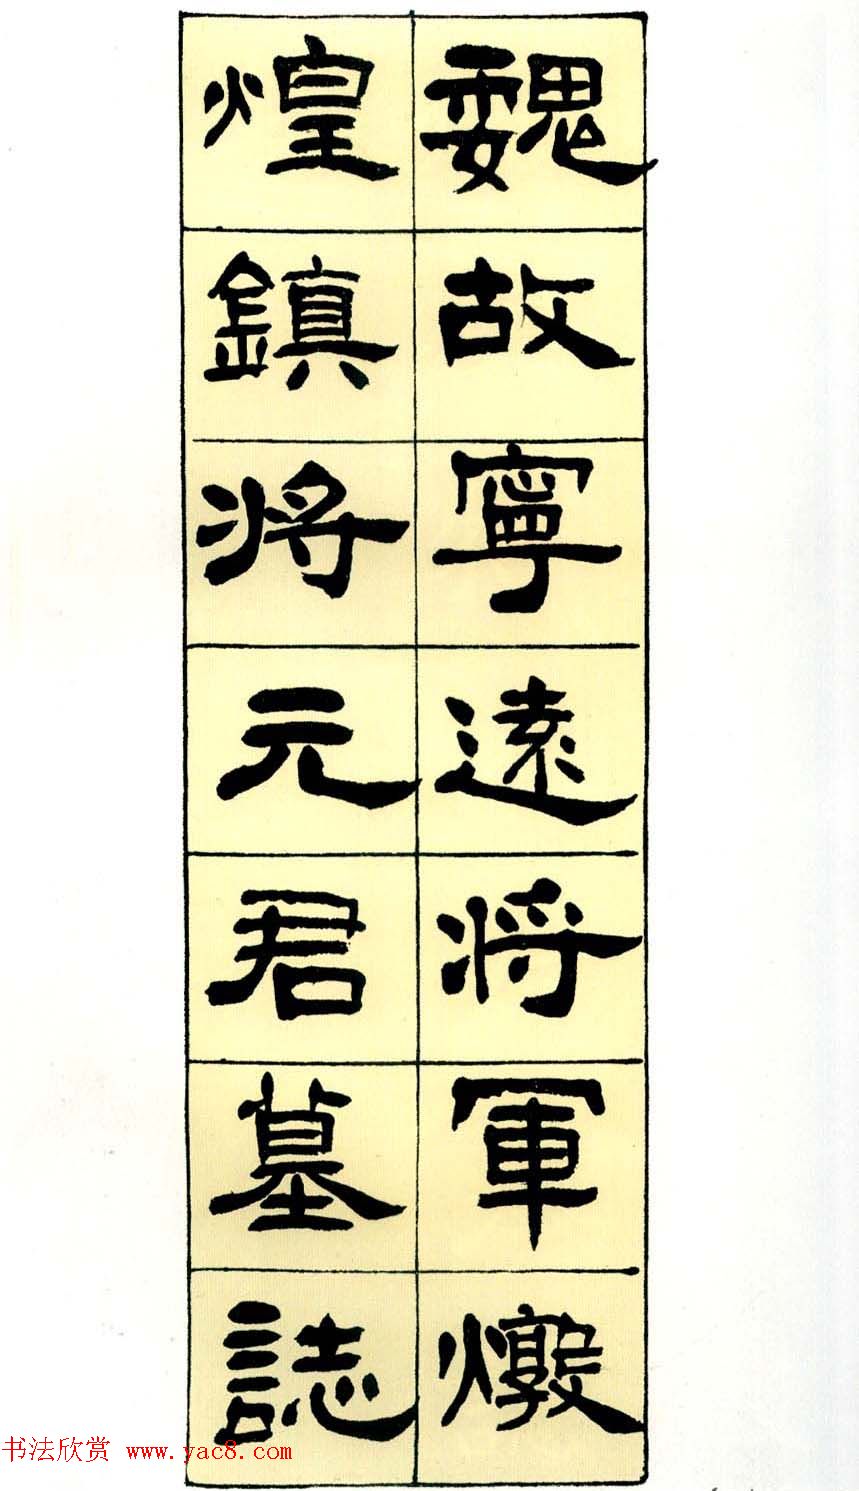 魏故寧遠將軍燉
煌鎮將元君墓誌
书法欣赏 www.yac8.com